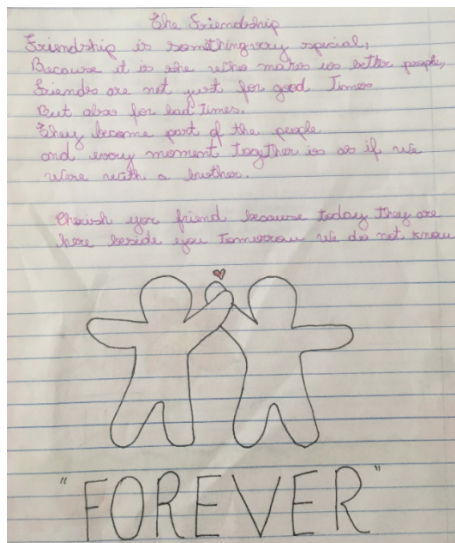 The Friendship
Friendship is something very special,
Because it is she who makes us better people,
Friends are not just for good Times
But also for bad Times.
They become part of the people
and every moment together is as if we
Were with a brother.
Cherish your friend because today they are
here beside you tomorrow we do not know
"FOREVER"